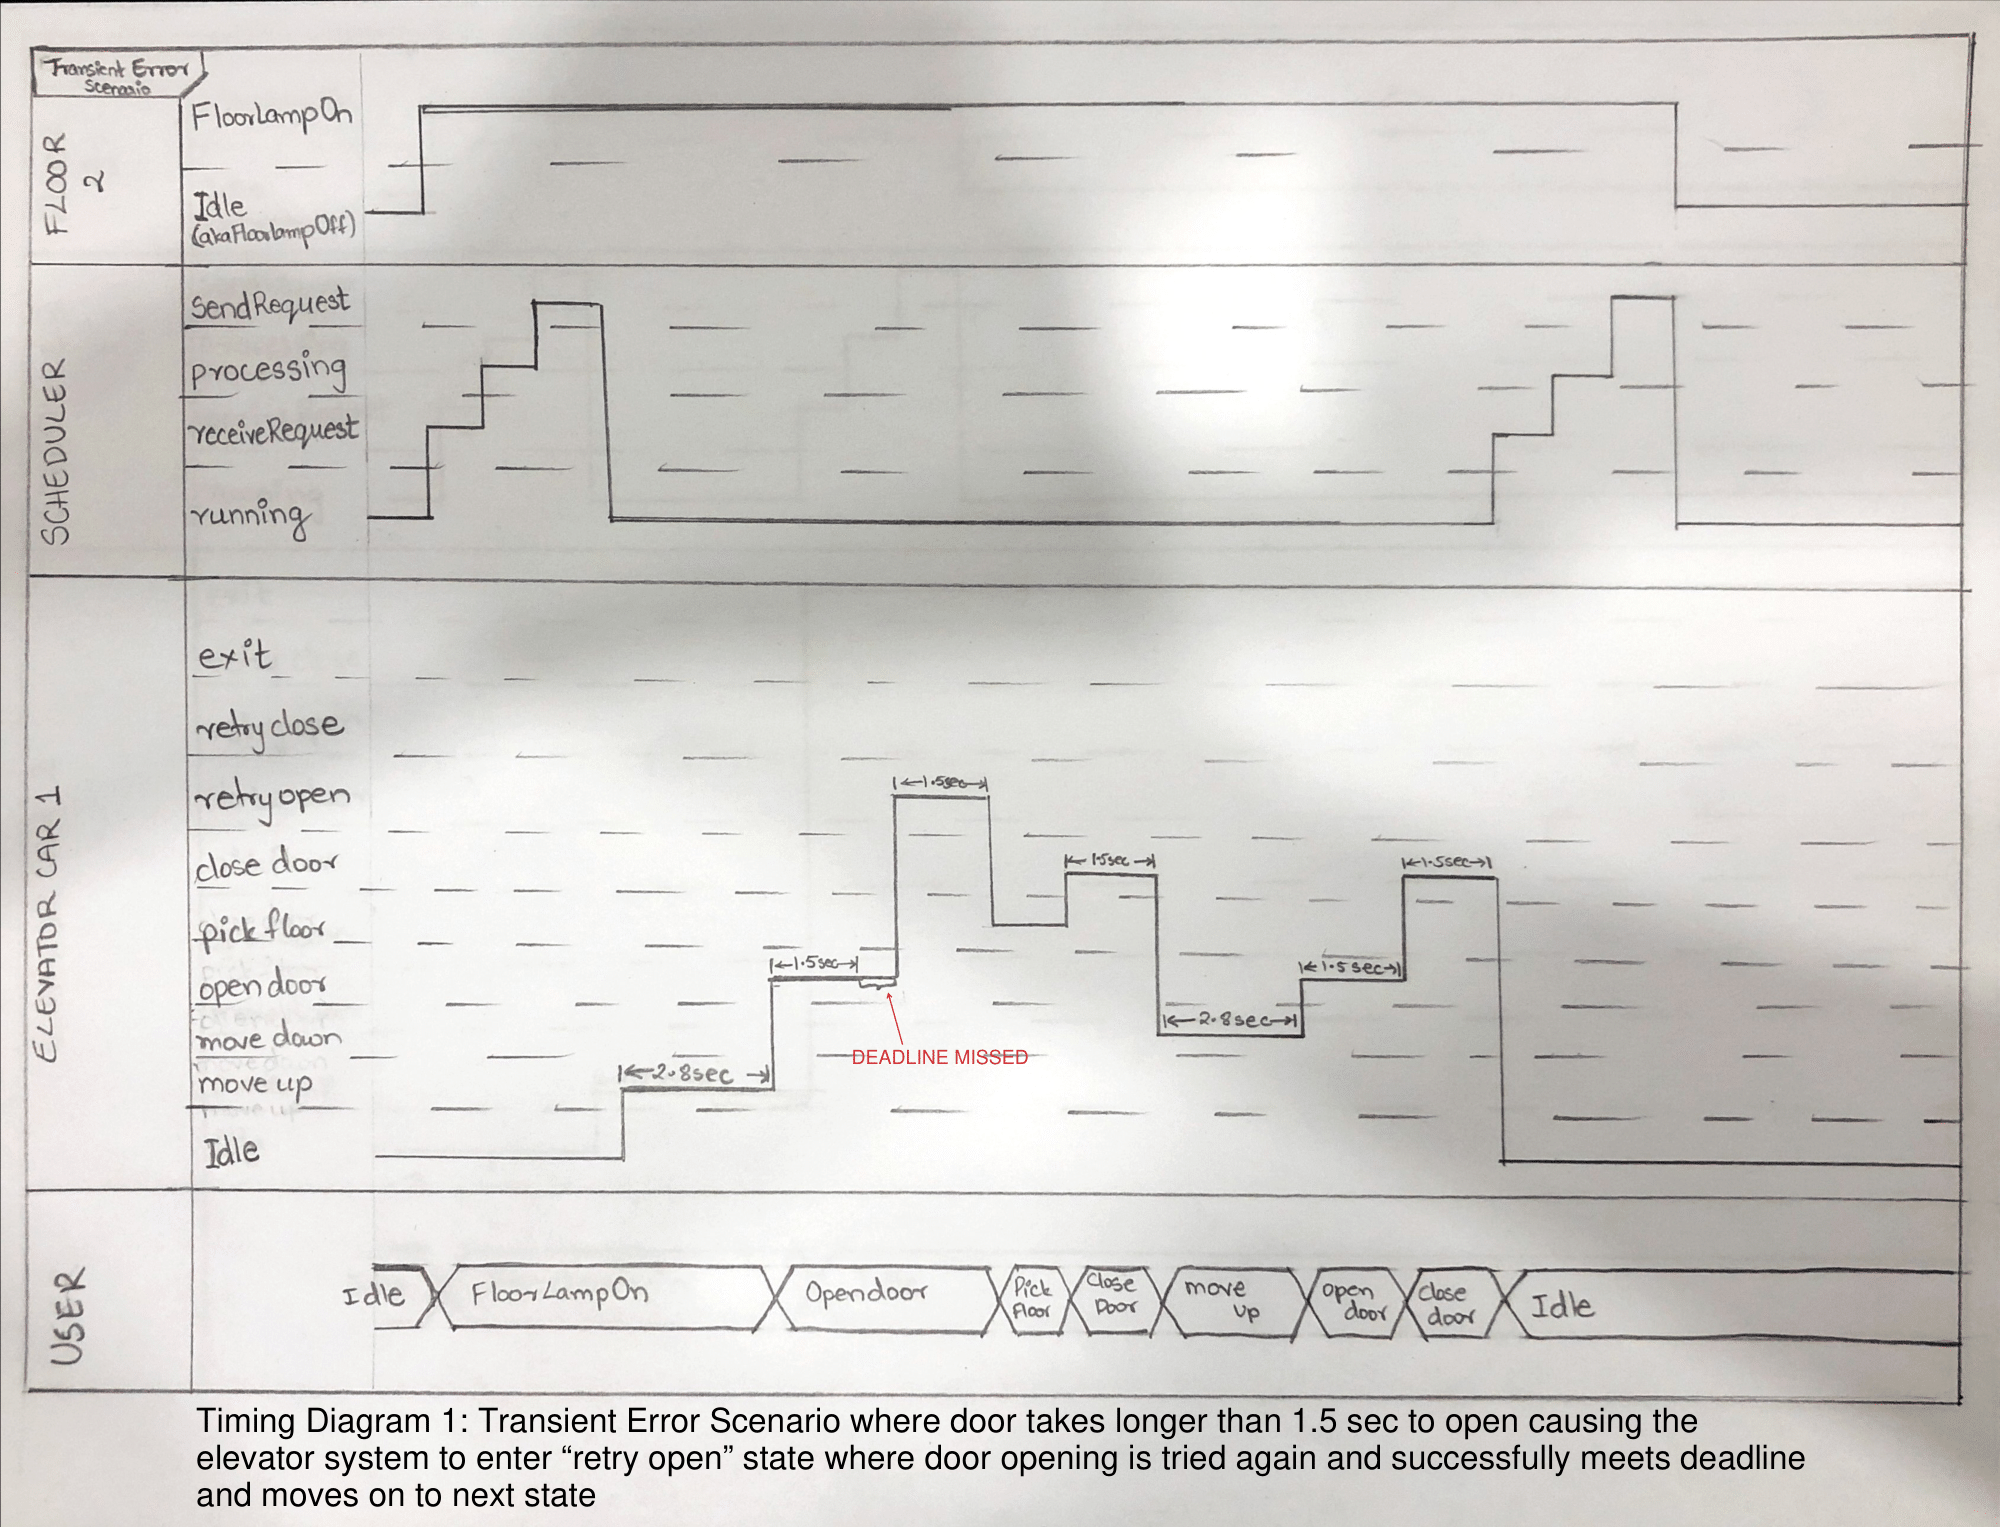 Transient Error
Scenario
FLOOR
2
FloorLampOn
Idle
(akaFloorlampOff)
SCHEDULER
SendRequest
processing
receiveRequest
running
ELEVATOR CAR 1
exit
retry close
retry open
close door
pick floor
open door
move down
move up
Idle
1.5sec
1.5sec
1.5sec
1.5sec
1.5sec
2.8sec
2.8sec
DEADLINE MISSED
USER
Idle
FloorLampOn
Opendoor
Pick
floor
Close
Door
move
up
open
door
close
door
Idle
Timing Diagram 1: Transient Error Scenario where door takes longer than 1.5 sec to open causing the
elevator system to enter “retry open” state where door opening is tried again and successfully meets deadline
and moves on to next state